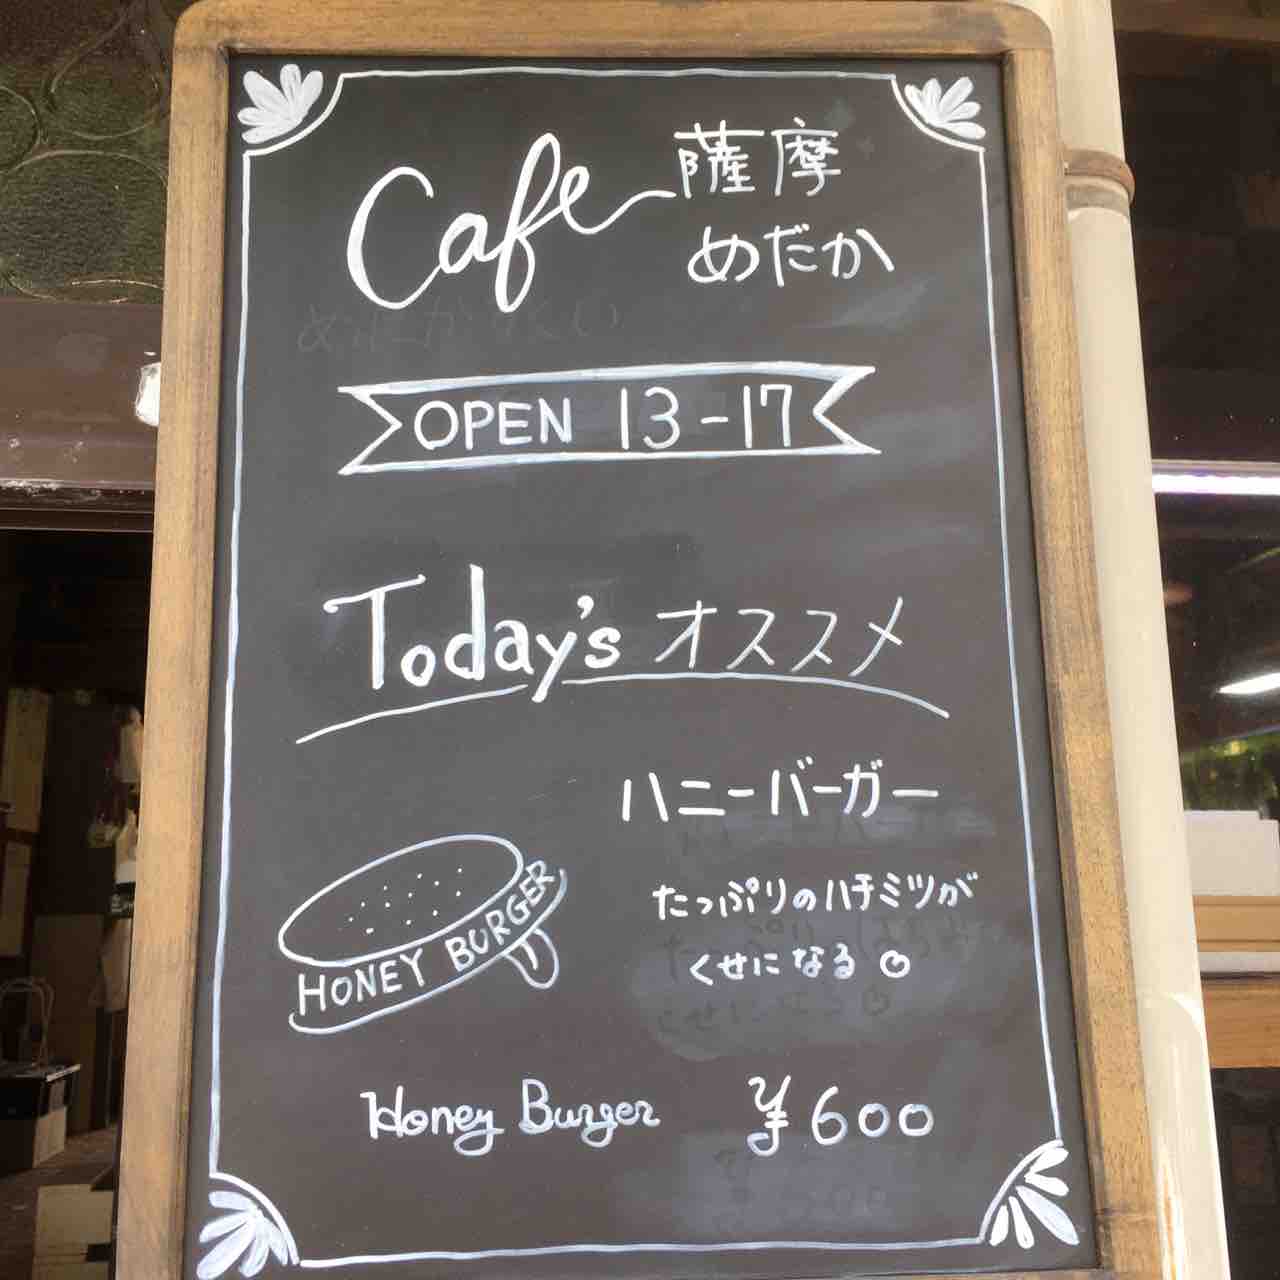 Cafe 薩摩
めだか
OPEN 13-17
Today's オススメ
ハニーバーガー
HONEY BURGER
たっぷりのハチミツが
くせになる
Honey Burger ¥600